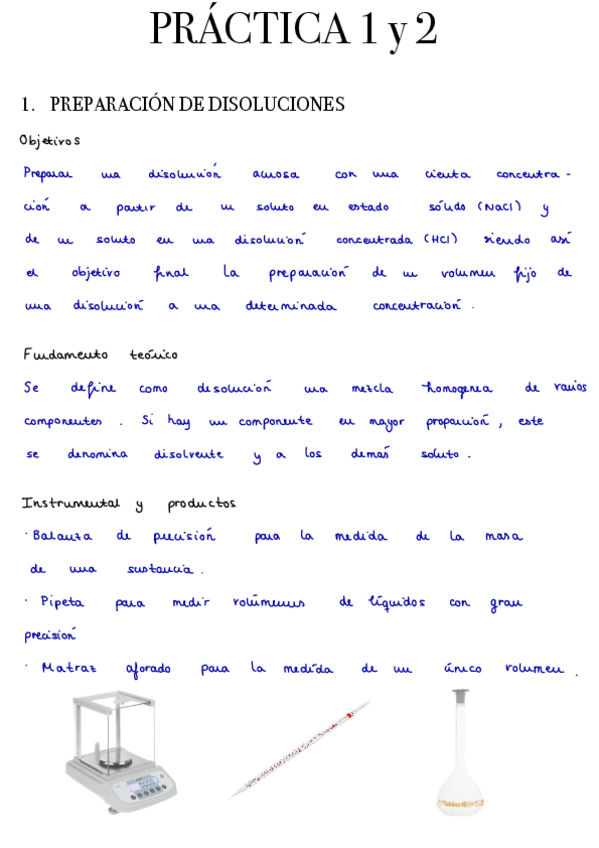 PRÁCTICA 1 y 2
1. PREPARACIÓN DE DISOLUCIONES
Objetivos
Preparar una disolución acuosa con una cierta concentra-
ción a partir de un soluto en estado sólido (NaCl) y
de un soluto en una disolución concentrada (HCl) siendo así
el objetivo final la preparación de un volumen fijo de
una disolución a una determinada concentración.
Fundamento teórico
Se define como disolución una mezcla homogenea de varios
componentes. Si hay un componente en mayor proporción, este
se denomina disolvente y a los demás soluto.
Instrumental y productos
· Balanza de precisión para la medida de la masa
de una sustancia.
· Pipeta para medir volúmenes de líquidos con gran
precisión
· Matraz aforado para la medida de un único volumen.